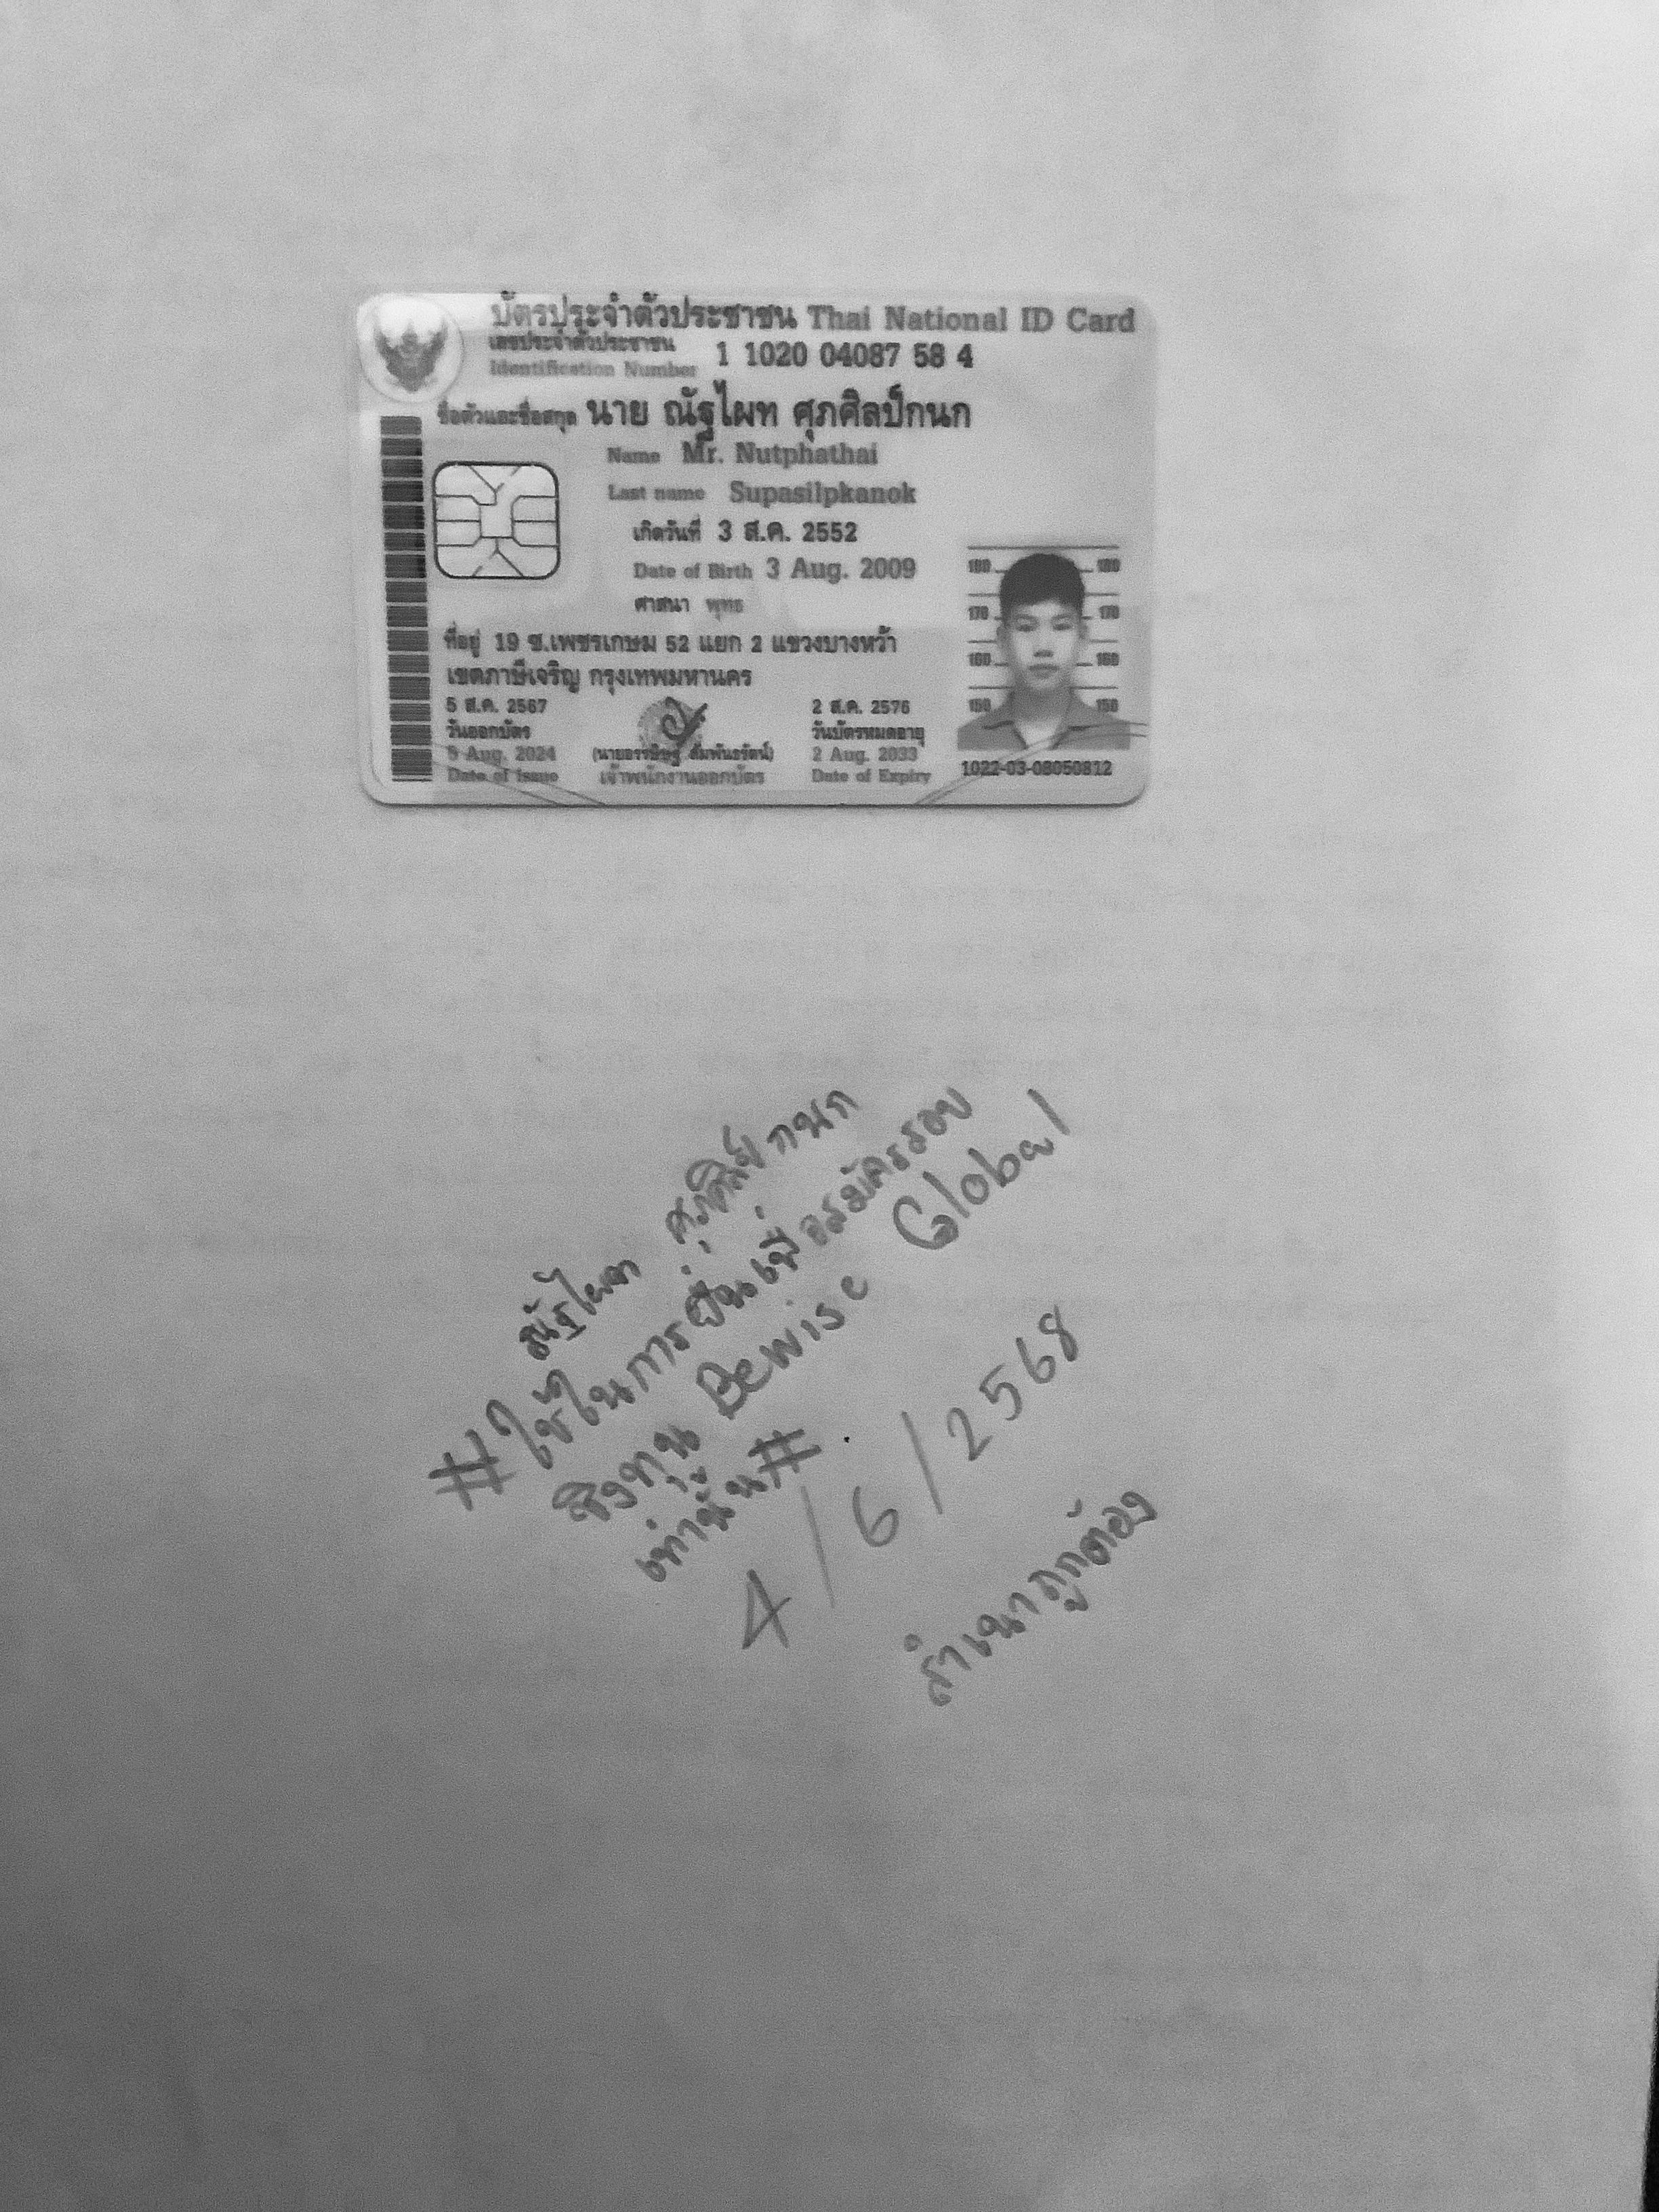 บัตรประจำตัวประชาชน Thai National ID Card
เลขประจำตัวประชาชน
Identification Number 1 1020 04087 58 4
ชื่อตัวและชื่อสกุล นาย ณัฐไผท ศุภศิลป์กนก
Name Mr. Nutphathai
Last name Supasilpkanok
เกิดวันที่ 3 ส.ค. 2552
Date of Birth 3 Aug. 2009
ศาสนา พุทธ
ที่อยู่ 19 ซ.เพชรเกษม 52 แยก 2 แขวงบางหว้า
เขตภาษีเจริญ กรุงเทพมหานคร
5 ส.ค. 2567
วันออกบัตร
5 Aug. 2024
Date of Issue
เจ้าพนักงานออกบัตร
2 ส.ค. 2576
วันบัตรหมดอายุ
2 Aug. 2033
Date of Expiry
180 180
170 170
160 160
150 150
1022-03-08050812
ณัฐไผท ศุภศิลป์กนก
#ใช้ในการยื่นเพื่อสมัครสอบ
ชิงทุน Bewise Global
เท่านั้น#
4/6/2568
สำเนาถูกต้อง